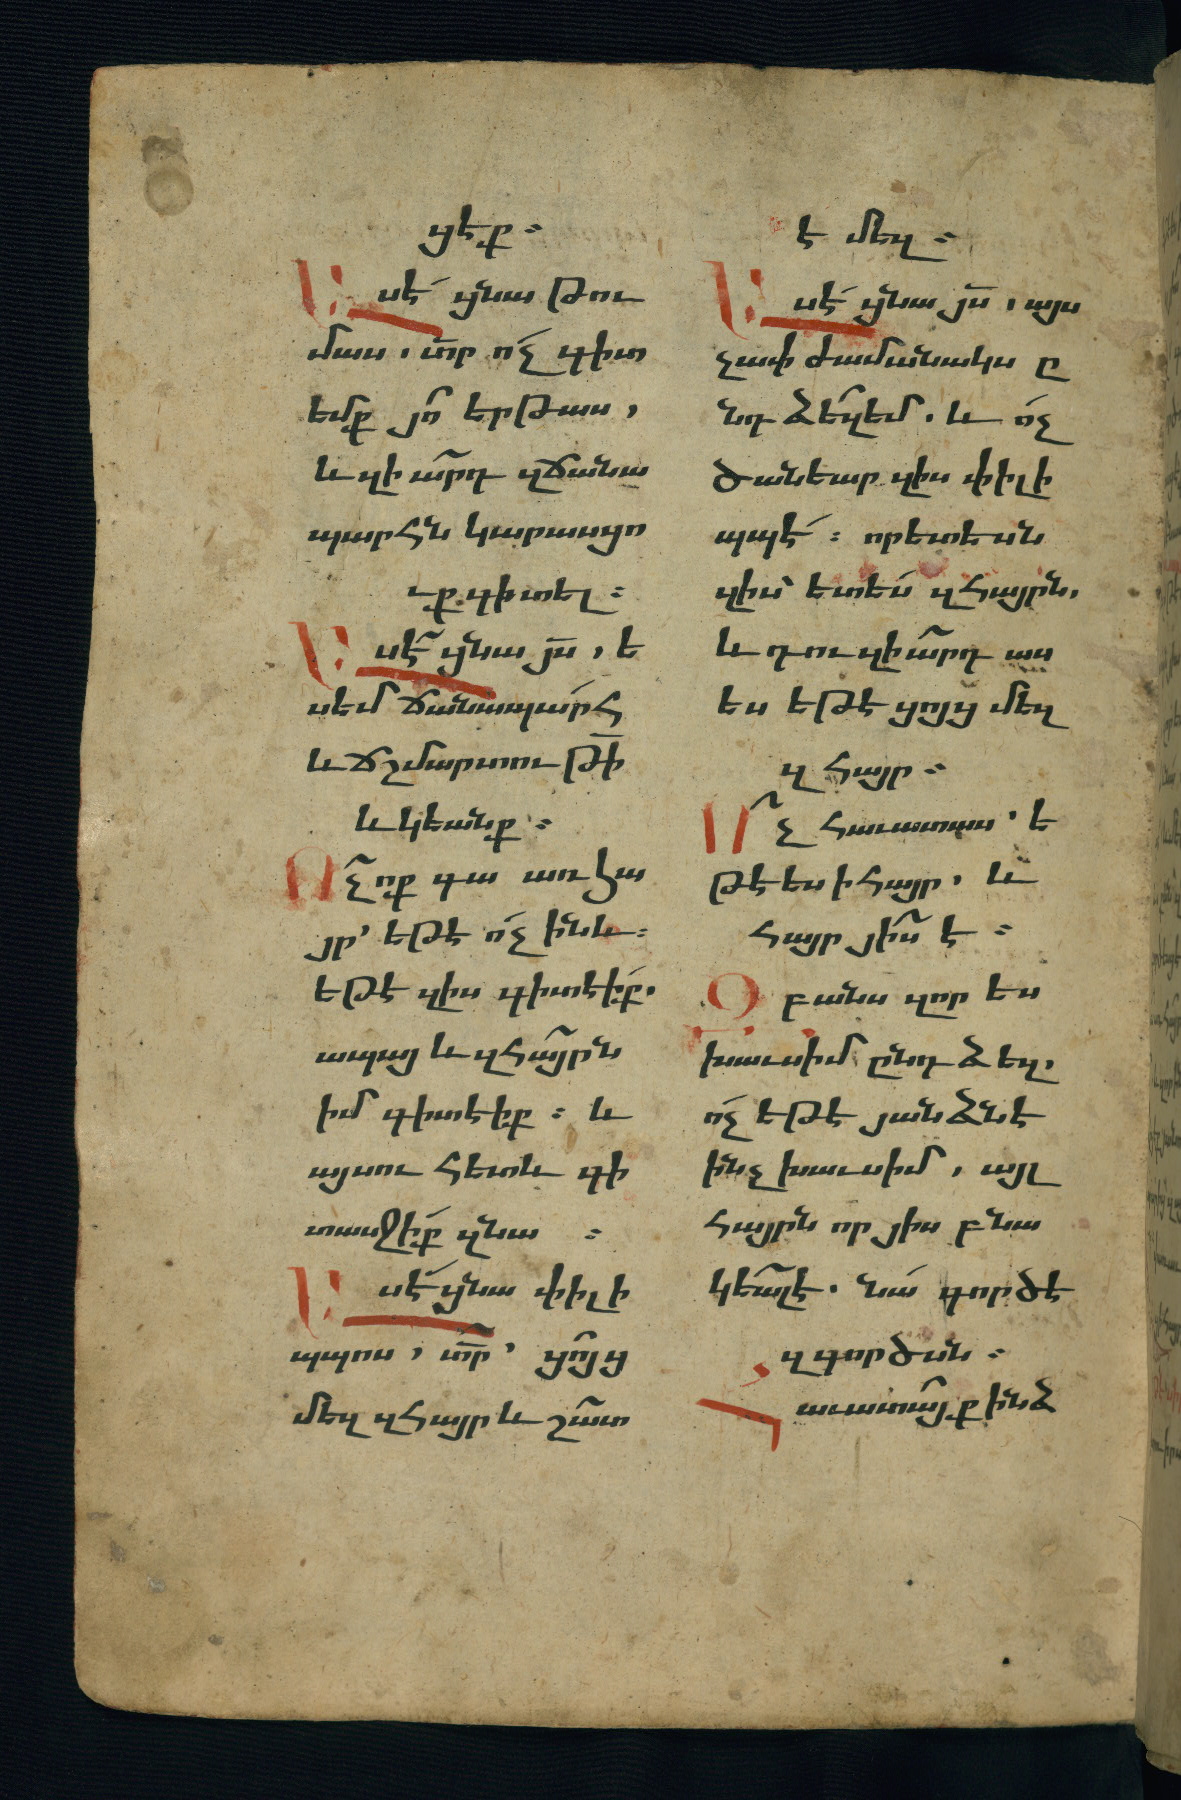 ցէք։
Ասէ ցնա թու
մաս, տր ոչ գիտ
եմք յո երթաս,
և զիարդ զճանա
պարհն կարասցո
ւք գիտել։
Ասէ ցնա յս, ե
սեմ ճանապարհ
և ճշմարտութի
և կեանք։
Ոչ ոք գա առ հա
յր՝ եթէ ոչ ինև։
եթէ զիս գիտէիք.
ապայ և զհայրն
իմ գիտէիք։ և
այսու հետև գի
տասջիք զնա ։
Ասէ ցնա փիլի
պպոս, տր՝ ցոյց
մեզ զհայր և շատ
է մեզ։
Ասէ ցնա յս, այս
չափ ժամանակս ը
նդ ձեզ եմ. և ոչ
ծանեար զիս փիլի
պպէ։ որ ետես
զիս՝ ետես զհայրն,
և դու զիարդ աս
ես եթէ ցոյց մեզ
զհայր։
Ոչ հաւատաս՝ ե
թէ ես ի հայր, և
հայր յիս է։
Զբանս զոր ես
խաւսիմ ընդ ձեզ,
ոչ եթէ յանձնէ
ինչ խաւսիմ, այլ
հայրն որ յիս բնա
կեալ է. նա գործէ
զգործսն։
Հաւատայք ինձ